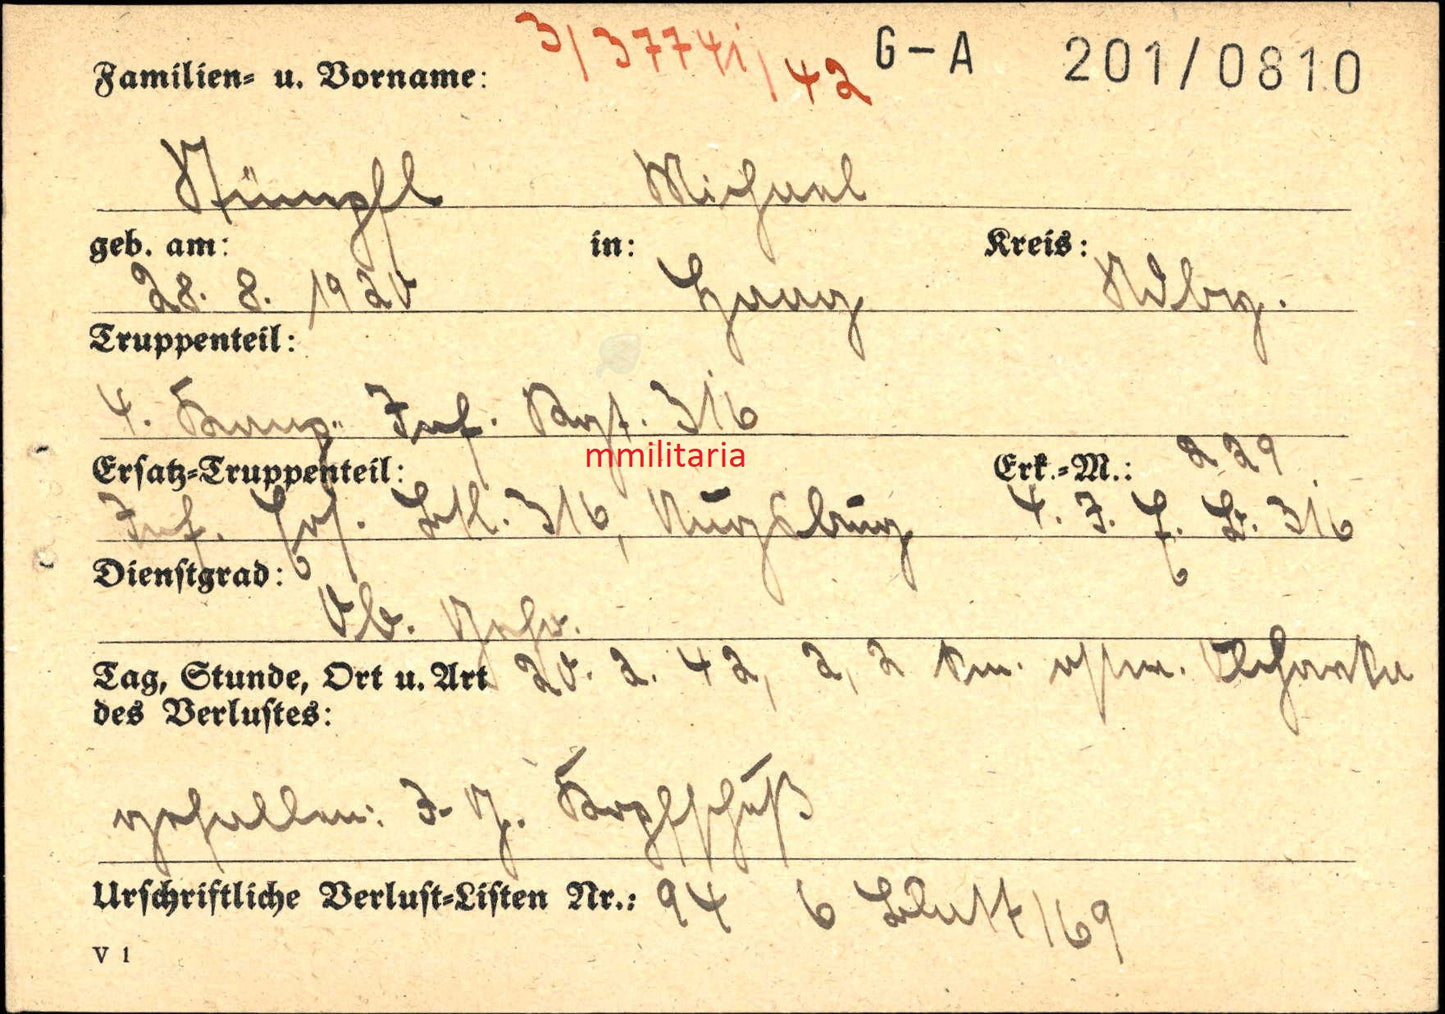 3/3774i/42 G-A 201/0810
Familien- u. Vorname:
Stümpfl Michael
geb. am: in: Kreis:
28. 8. 1920 Haag Ndbg.
Truppenteil:
4. Komp. Inf. Rgt. 316
mmilitaria
Ersatz-Truppenteil: Erk.-M.: 229
Inf. Ers. Btl. 316, Augsburg 4. I. E. B. 316
Dienstgrad:
Ob. Gefr.
Tag, Stunde, Ort u. Art 20. 2. 42, 2,2 km. ostw.
des Verlustes:
gefallen: I. G. Kopfschuß
Urschriftliche Verlust-Listen Nr.: 94 6 Blatt 169
V 1